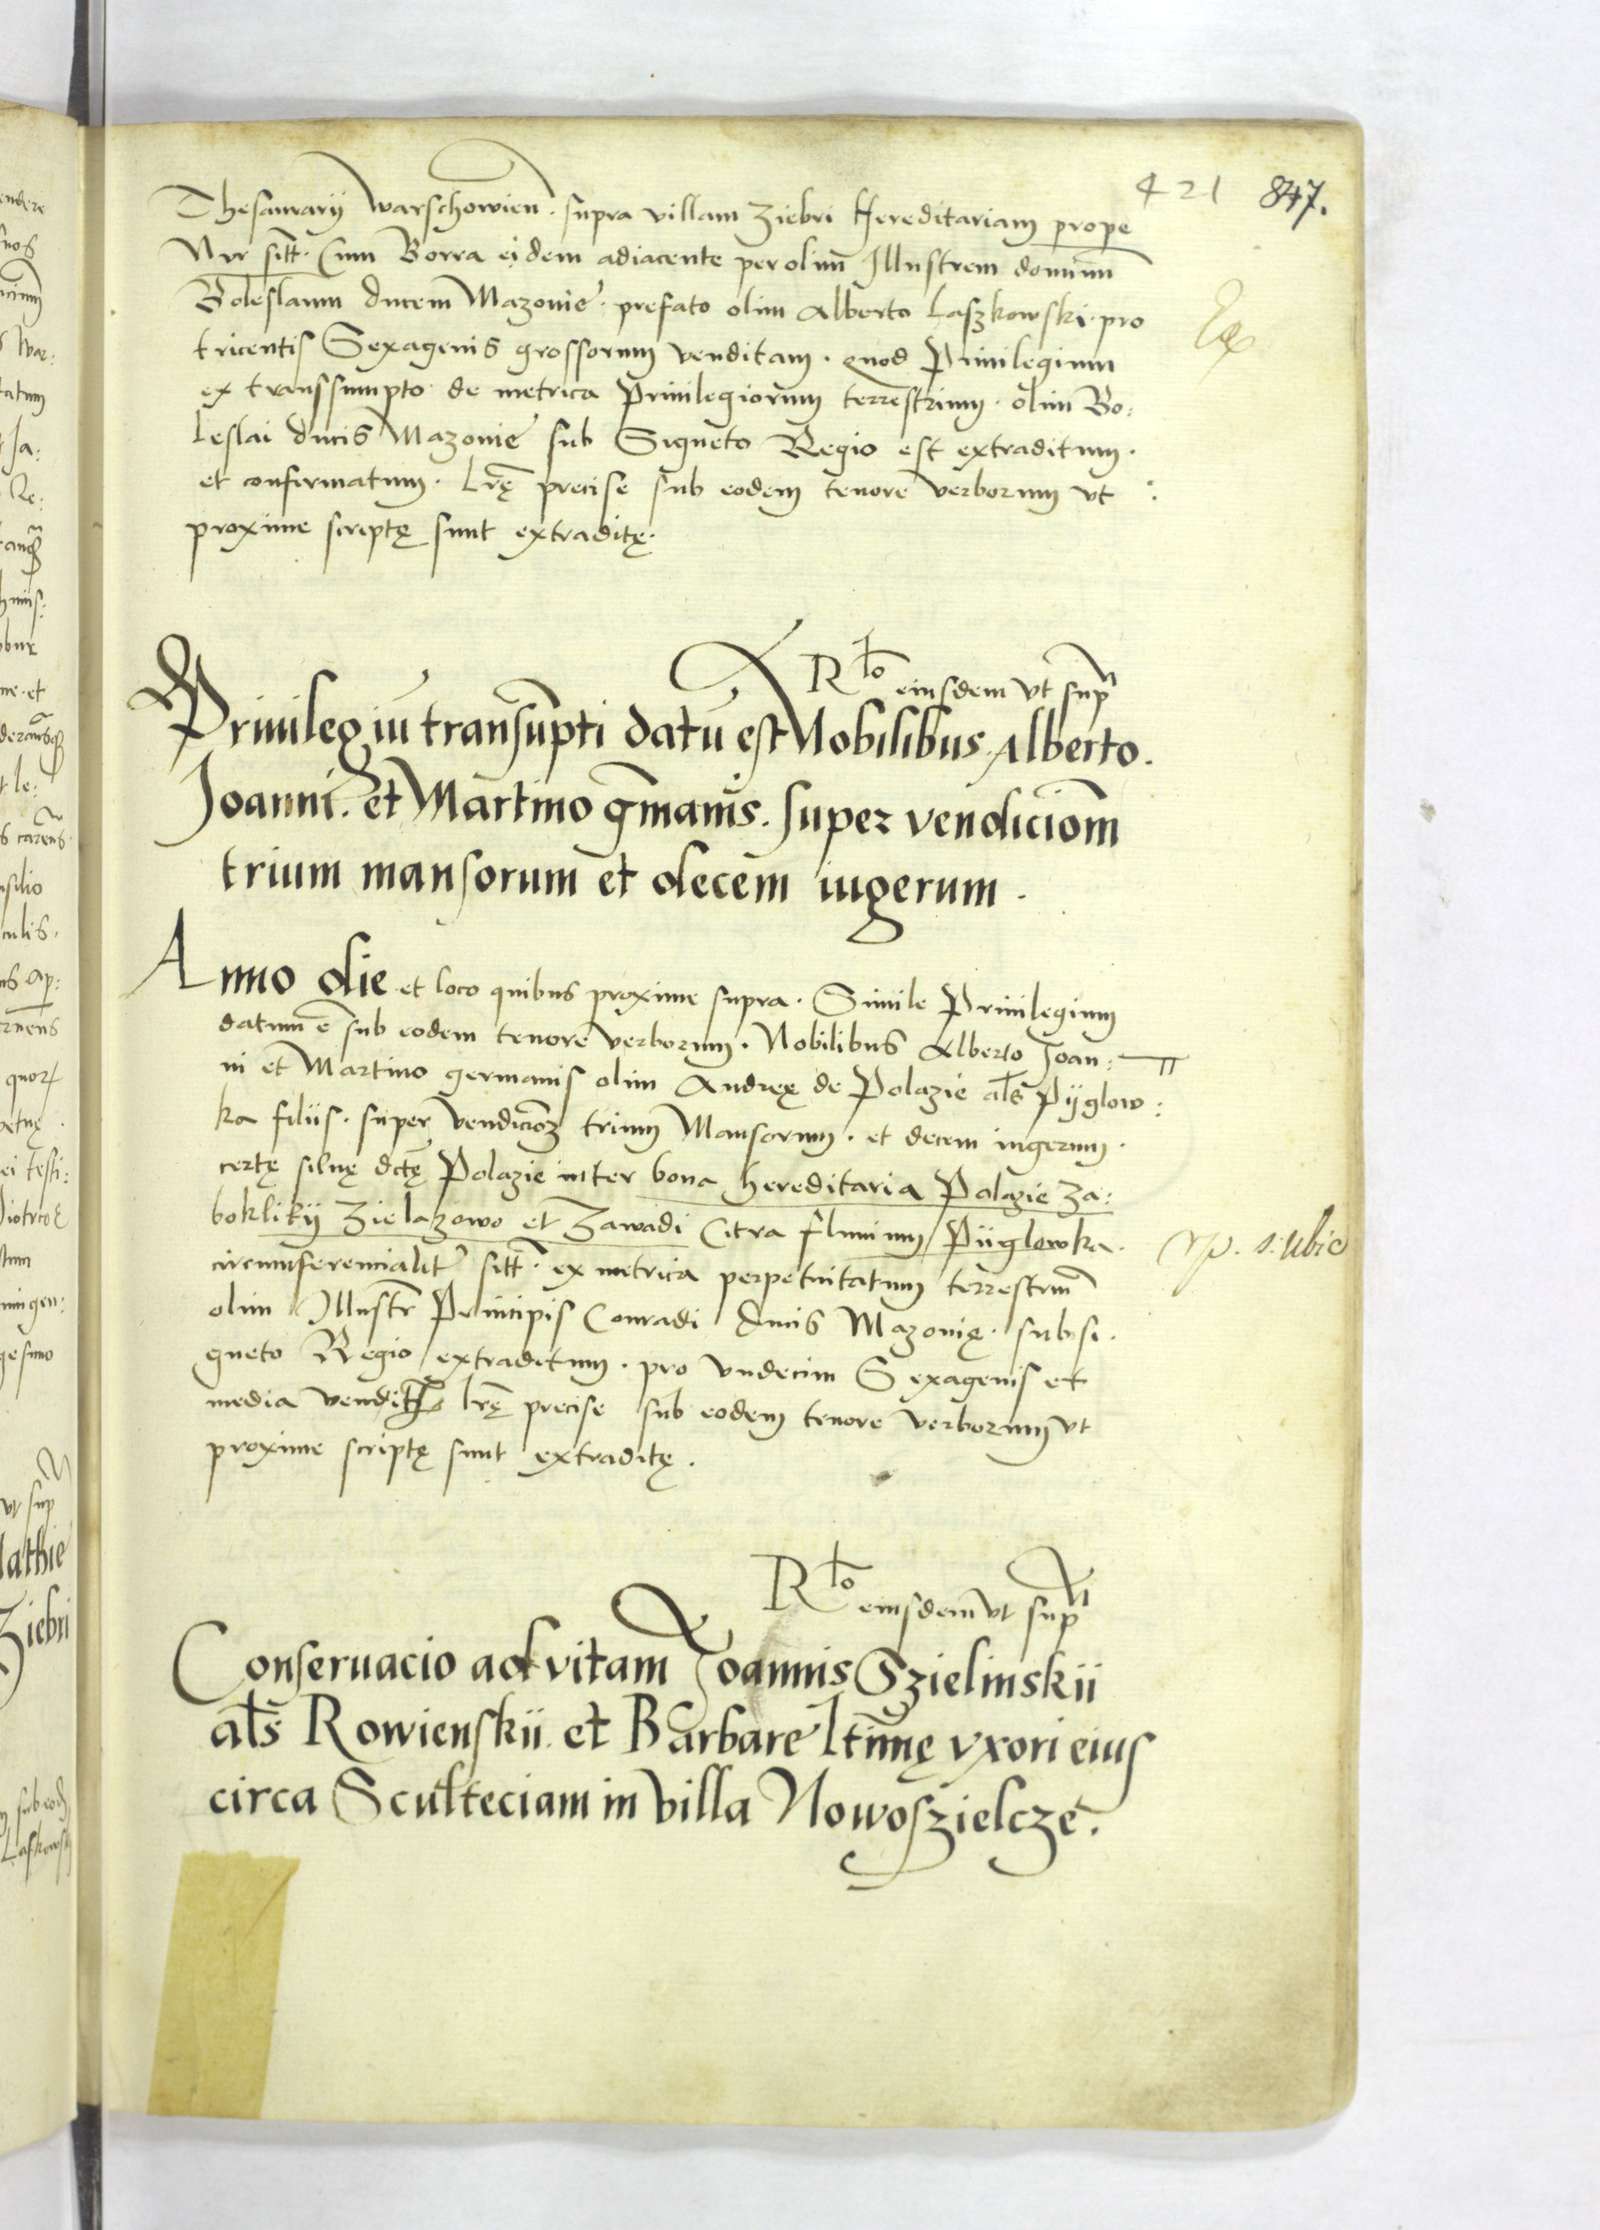 421 847.
Thesaurarij Warschowien̄. supra villam Ziebri Hereditariam prope
Nur sitt̄. Cum Borra eidem adiacente per olim̄ Illustrem dominum̄
Boleslaum ducem Mazovie. prefato olim Alberto Laszkowski. pro
tricentis Sexagenis grossorum venditam. quod Privilegium
ex transsumpto de metrica Privilegiorum terrestrium. olim Bo:
leslai ducis Mazovie sub Signeto Regio est extraditum.
et confirmatum. Lr̄ę precise sub eodem tenore verborum vt
proxime scriptę sunt extraditę.
R^to eiusdem vt sup^a
Privilegiū transūpti datū est Nobilibus Alberto.
Joanni. et Martino gm̄anis. super vendiciōm
trium mansorum et decem iugerum.
Anno die et loco quibus proxime supra. Simile Privilegium
datum ē sub eodem tenore verborum. Nobilibus Alberto Joan:
ni et Martino germanis olim Andreę de Polazie al̄s Pÿglow:
ka filiis. super vendiciōm trium Mansorum. et decem iugerum.
certę siluę dctę Polazie inter bona hereditaria Polazie Za:
boklikÿ Zielazowo et Zawadi Citra fluuium Pÿglowka.
circumferencialit̄ sitt̄. ex metrica perpetuitatum terrestriū
olim Illustr̄ Principis Conradi ducis Mazovię. sub si.
gneto Regio extraditum. pro vndecim Sexagenis et
media vendit̄ Lr̄ę precise sub eodem tenore verborum vt
proxime scriptę sunt extraditę.
R^to eiusdem vt sup^a
Conseruacio ad vitam Joannis Szielinskii
al̄s Rowienskii et Barbare Ltim̄ę vxori eius
circa Sculteciam in villa Nowoszielcze.